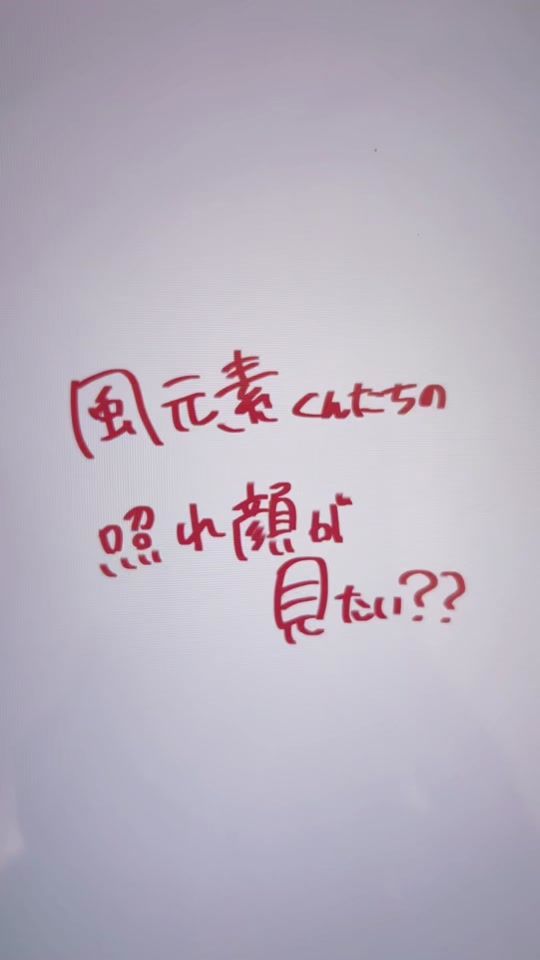 風元素くんたちの
照れ顔が
見たい??